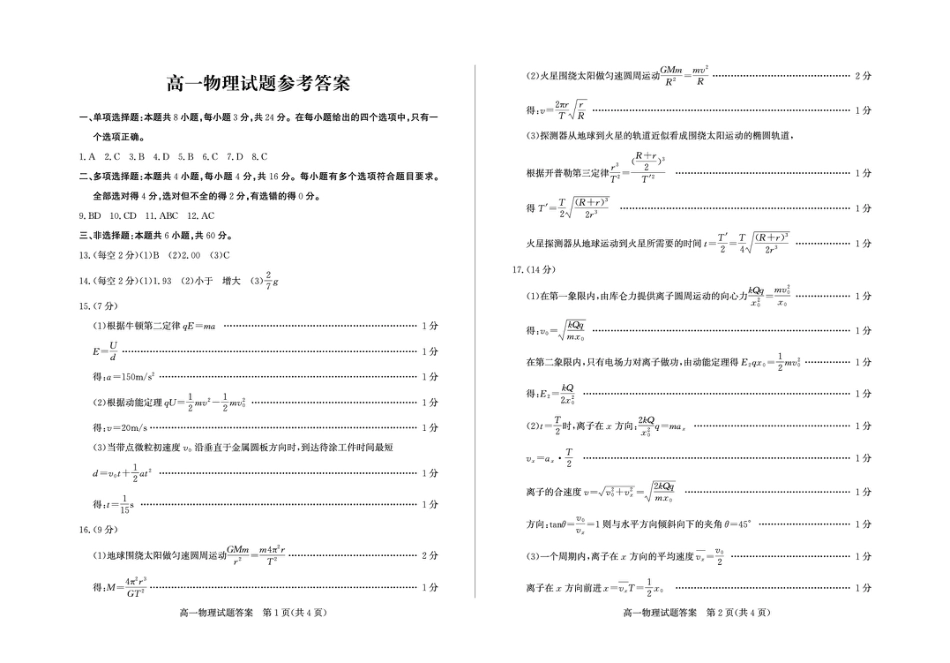 高一物理试题参考答案
一、单项选择题:本题共 8 小题,每小题 3 分,共 24 分。在每小题给出的四个选项中,只有一
个选项正确。
1. A 2. C 3. B 4. D 5. B 6. C 7. D 8. C
二、多项选择题:本题共 4 小题,每小题 4 分,共 16 分。每小题有多个选项符合题目要求。
全部选对得 4 分,选对但不全的得 2 分,有选错的得 0 分。
9. BD 10. CD 11. ABC 12. AC
三、非选择题:本题共 6 小题,共 60 分。
13. (每空 2 分)(1)B (2)2.00 (3)C
14. (每空 2 分)(1)1.93 (2)小于 增大 (3)2/7 g
15. (7 分)
(1)根据牛顿第二定律 qE=ma ……………… 1 分
E=U/d ……………… 1 分
得:a=150m/s² ……………… 1 分
(2)根据动能定理 qU=1/2 mv²−1/2 mv₀² ……………… 1 分
得:v=20m/s ……………… 1 分
(3)当带点微粒初速度 v₀ 沿垂直于金属圆板方向时,到达待涂工件时间最短
d=v₀t+1/2 at² ……………… 1 分
得:t=1/15 s ……………… 1 分
16. (9 分)
(1)地球围绕太阳做匀速圆周运动 GMm/r²=m4π²r/T² ……………… 2 分
得:M=4π²r³/GT² ……………… 1 分
高一物理试题答案 第 1 页(共 4 页)
(2)火星围绕太阳做匀速圆周运动 GMm/R²=mv²/R ……………… 2 分
得:v=2πr/T √(r/R) ……………… 1 分
(3)探测器从地球到火星的轨道近似看成围绕太阳运动的椭圆轨道,
根据开普勒第三定律 r³/T²=((R+r)/2)³/T′² ……………… 1 分
得 T′=T/2 √((R+r)³/2r³) ……………… 1 分
火星探测器从地球运动到火星所需要的时间 t=T′/2=T/4 √((R+r)³/2r³) ……………… 1 分
17. (14 分)
(1)在第一象限内,由库仑力提供离子圆周运动的向心力 kQq/x₀²=mv₀²/x₀ ……………… 1 分
得:v₀=√(kQq/mx₀) ……………… 1 分
在第二象限内,只有电场力对离子做功,由动能定理得 E₂qx₀=1/2 mv₀² ……………… 1 分
得:E₂=kQ/2x₀² ……………… 1 分
(2)t=T/2 时,离子在 x 方向:2kQ/x₀² q=maₓ ……………… 1 分
vₓ=aₓ·T/2 ……………… 1 分
离子的合速度 v=√(v₀²+vₓ²)=√(2kQq/mx₀) ……………… 1 分
方向:tanθ=v₀/vₓ=1 则与水平方向倾斜向下的夹角 θ=45° ……………… 1 分
(3)一个周期内,离子在 x 方向的平均速度 v̅ₓ=v₀/2 ……………… 1 分
离子在 x 方向前进 x=v̅ₓT=1/2 x₀ ……………… 1 分
高一物理试题答案 第 2 页(共 4 页)